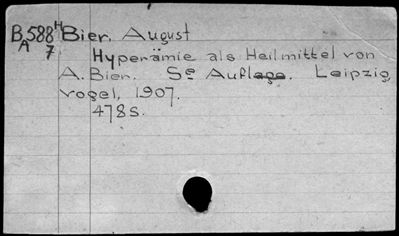 B588H Bier, August
A 7 Hyperämie als Heilmittel von
A. Bier. 5e Auflage. Leipzig,
Vogel, 1907.
478s.